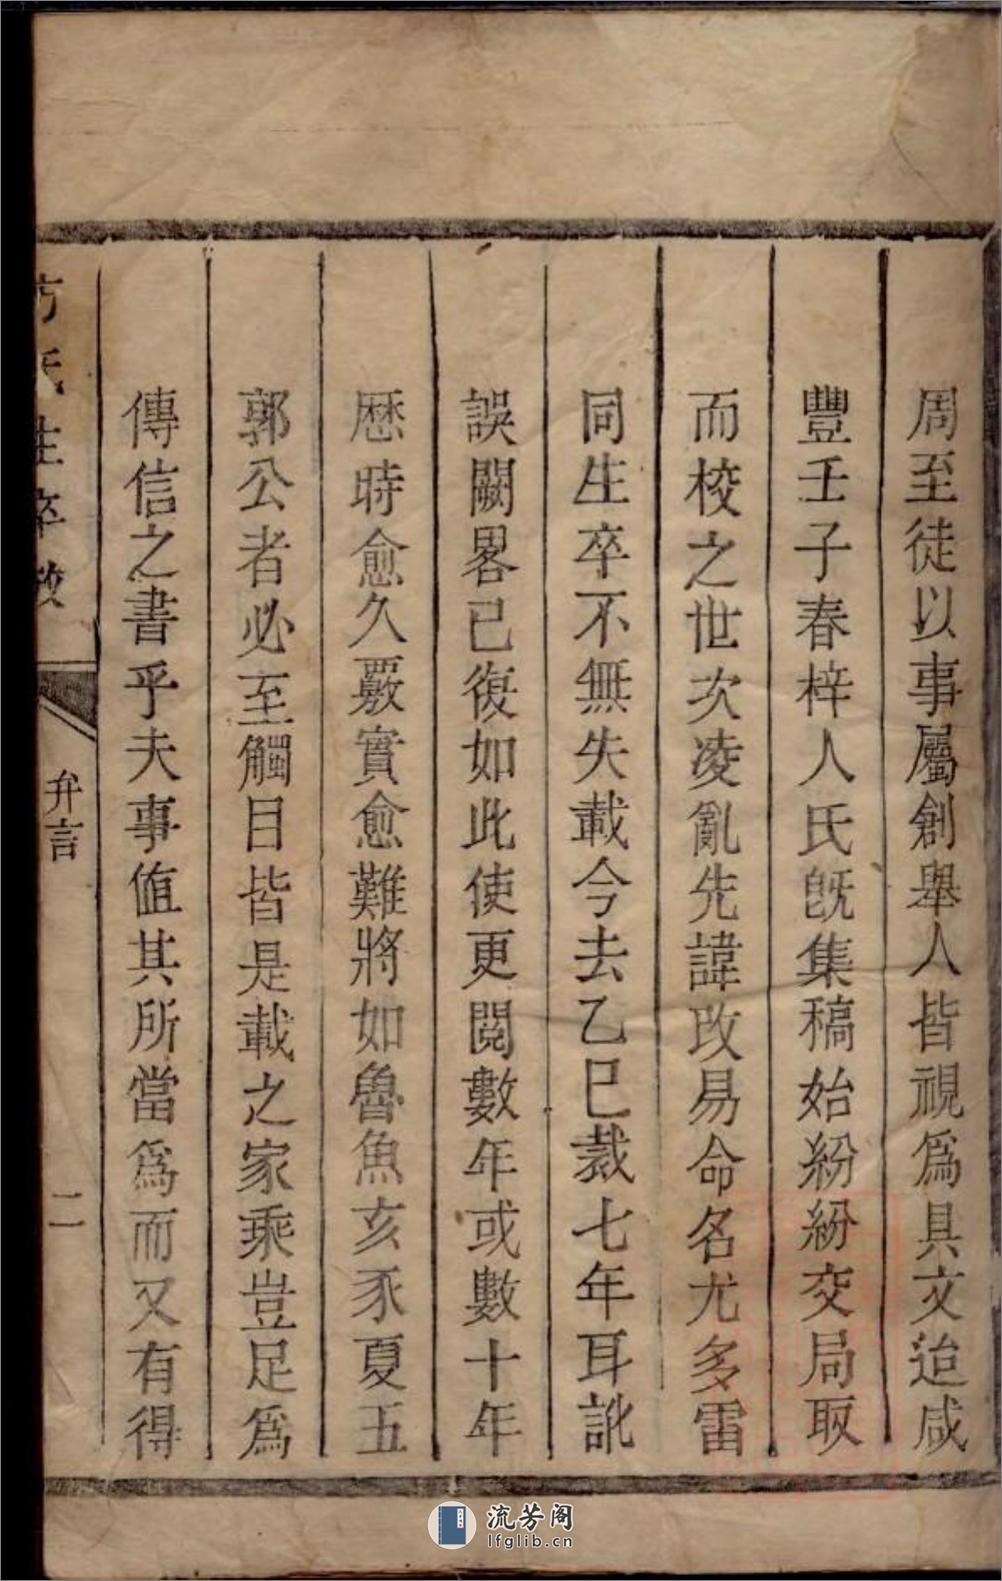 周至徒以事屬創舉人皆視爲具文迨咸
豐壬子春梓人氏旣集稿始紛紛交局取
而校之世次凌亂先諱攺易命名尤多雷
同生卒不無失載今去乙巳裁七年耳訛
誤闕畧已復如此使更閱數年或數十年
厯時愈久覈實愈難將如魯魚亥豕夏五
郭公者必至觸目皆是載之家乘豈足爲
傳信之書乎夫事値其所當爲而又有得
方氏生卒攷
弁言
二
流芳阁
lfglib.cn